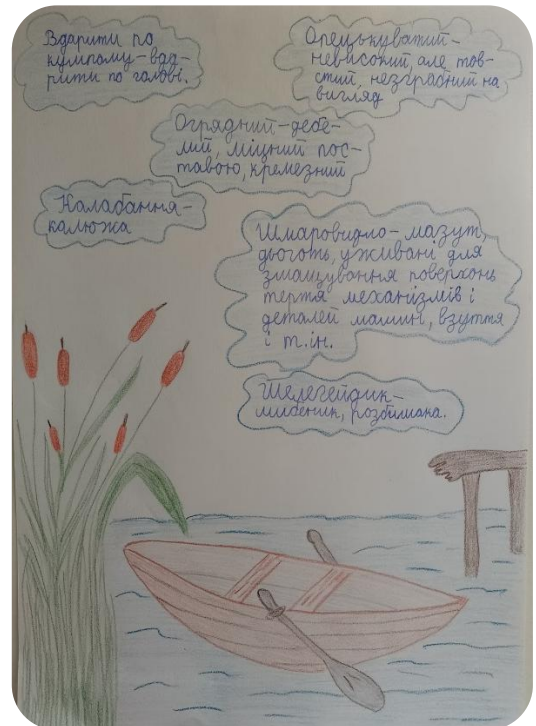 Вдарити по
кумполу-вда-
рити по голові.
Орецькуватий-
невисокий, але тов-
стий, незграбний на
вигляд
Огрядний-дебе-
лий, міцний пос-
тавою, кремезний
Калабання-
калюжа
Шмаровидло- мазут,
дьоготь, уживані для
змащування поверхонь
тертя механізмів і
деталей машин, взуття
і т.ін.
Шелегейдик-
шибеник, розбишака.